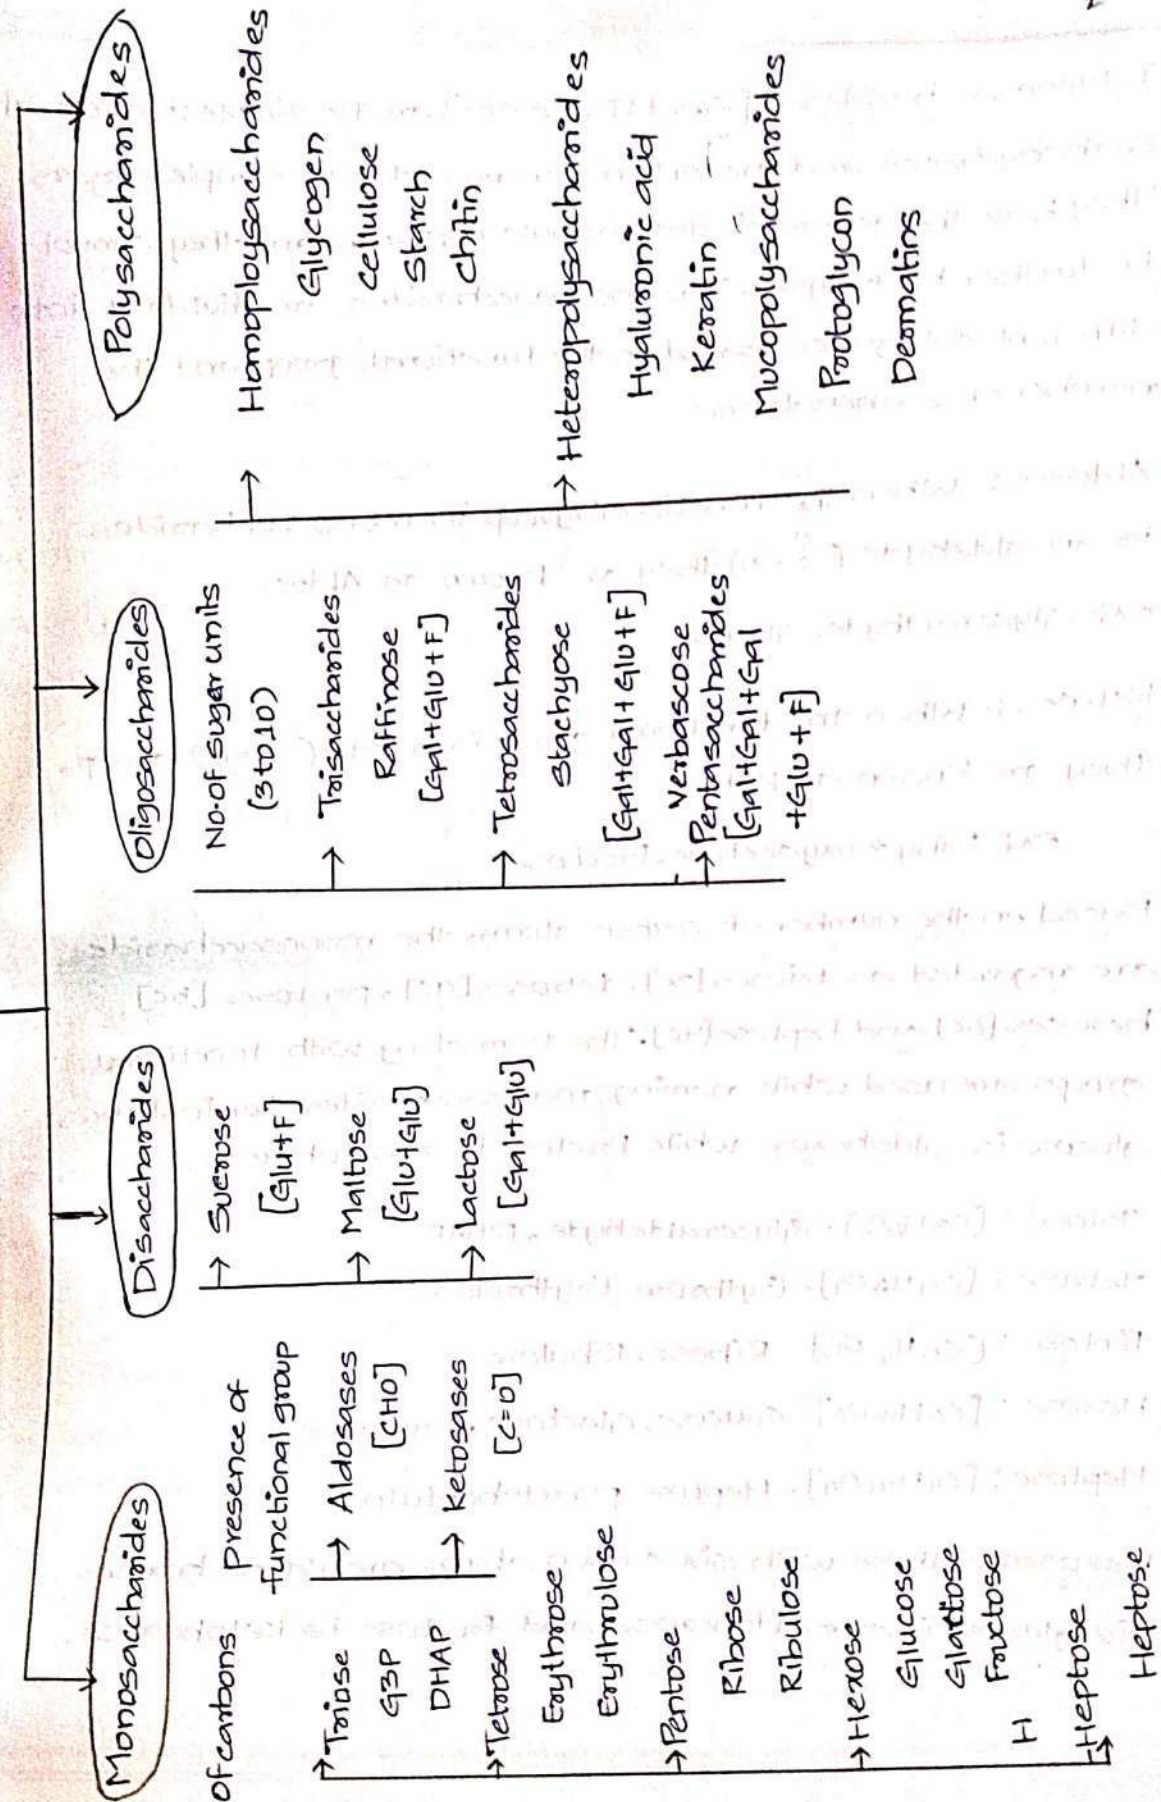 Monosaccharides
Of carbons
Triose
G3P
DHAP
Tetrose
Erythrose
Erythrulose
Pentose
Ribose
Ribulose
Hexose
Glucose
Glattose
Fructose
H
Heptose
Heptose
Presence of
functional group
Aldosases
[CHO]
Ketosases
[C=O]
Disaccharides
Sucrose
[Glu+F]
Maltose
[Glu+Glu]
Lactose
[Gal+Glu]
Oligosaccharides
No.of suger units
(3 to 10)
Trisaccharides
Raffinose
[Gal+Glu+F]
Tetrosaccharides
Stachyose
[Gal+Gal+Glu+F]
Verbascose
Pentasaccharides
[Gal+Gal+Gal
+Glu+F]
Polysaccharides
Homoploysaccharides
Glycogen
Cellulose
Starch
Chitin
Heteropolysaccharides
Hyaluronic acid
Keratin
Mucopolysaccharides
Protoglycon
Dermatins